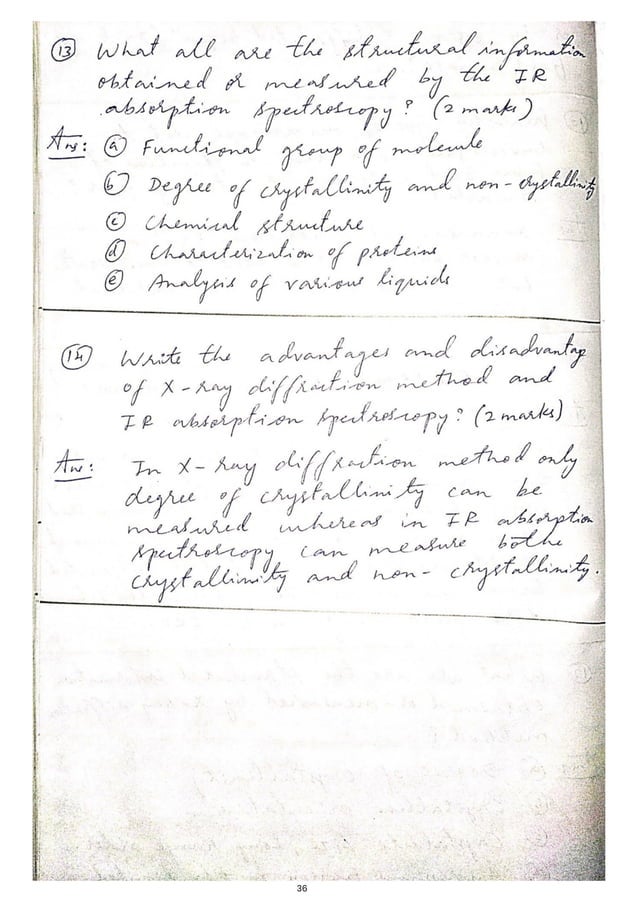 13 What all are the structural information
obtained or measured by the IR
absorption spectroscopy? (2 marks)
Ans: a Functional group of molecule
b Degree of crystallinity and non-crystallinity
c Chemical structure
d Characterization of proteins
e Analysis of various liquids
14 Write the advantages and disadvantag
of X-ray diffraction method and
IR absorption spectroscopy? (2 marks)
Ans: In X-ray diffraction method only
degree of crystallinity can be
measured whereas in IR absorption
spectroscopy can measure bothe
crystallinity and non-crystallinity.
36